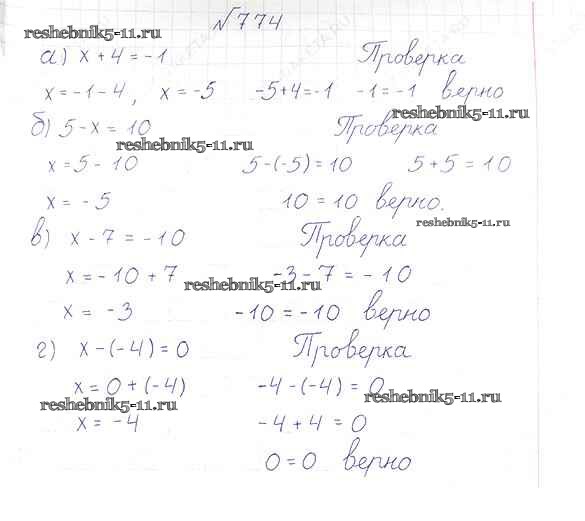 №774
reshebnik5-11.ru
а) x + 4 = -1 Проверка
x = -1 - 4, x = -5 -5+4=-1 -1=-1 верно
reshebnik5-11.ru
б) 5 - x = 10 Проверка
reshebnik5-11.ru
x = 5 - 10 5-(-5) = 10 5 + 5 = 10
x = -5 10 = 10 верно.
reshebnik5-11.ru
в) x - 7 = -10 Проверка
x = -10 + 7 -3 - 7 = -10
reshebnik5-11.ru
x = -3 -10 = -10 верно
г) x - (-4) = 0 Проверка
x = 0 + (-4) -4 - (-4) = 0
reshebnik5-11.ru reshebnik5-11.ru
x = -4 -4 + 4 = 0
0 = 0 верно